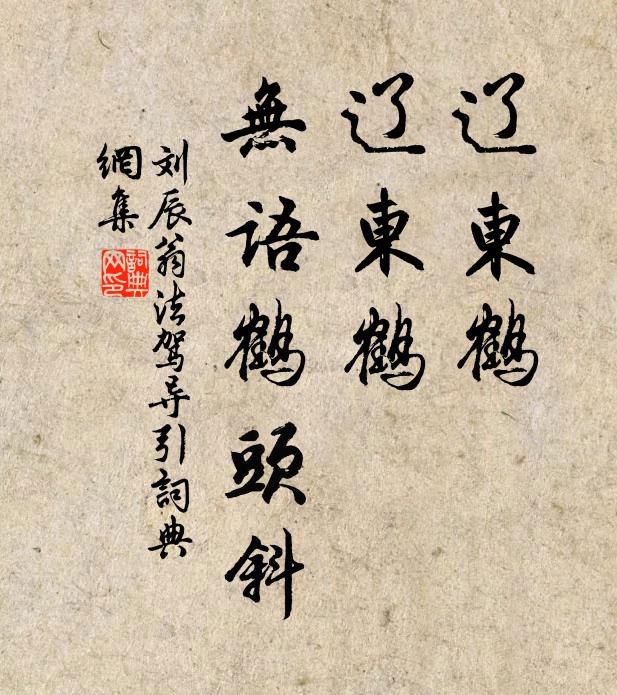 辽東鶴
辽東鶴
無語鶴頭斜
刘辰翁法驾导引詞典
網集
詞典網印